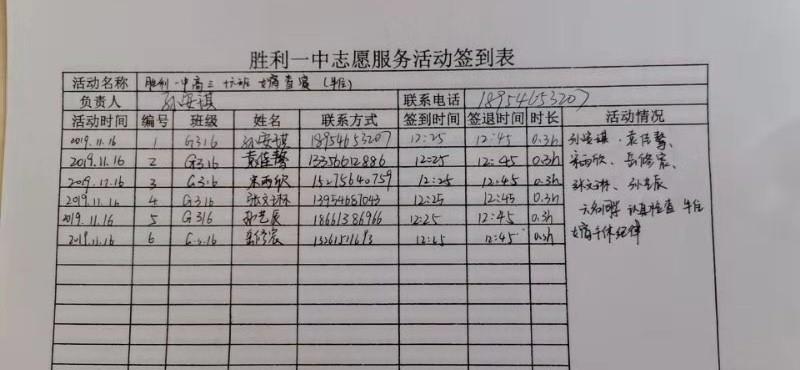 胜利一中志愿服务活动签到表
活动名称 胜利一中高三十六班 女宿查寝 (午住)
负责人 孙安琪 联系电话 18954653207
活动时间 编号 班级 姓名 联系方式 签到时间 签退时间 时长 活动情况
2019.11.16 1 G316 孙安琪 18954653207 12:25 12:45 0.3h 孙安琪、袁佳馨、
2019.11.16 2 G316 袁佳馨 13356612886 12:25 12:45 0.3h 宋雨欣、岳修宸、
2019.11.16 3 G316 宋雨欣 15275640759 12:25 12:45 0.3h 张文琳、孙艺辰
2019.11.16 4 G316 张文琳 13954687043 12:25 12:45 0.3h 六名同学 认真检查 午住
2019.11.16 5 G316 孙艺辰 18661386966 12:25 12:45 0.3h
2019.11.16 6 G316 岳修宸 12:45 女宿午休纪律